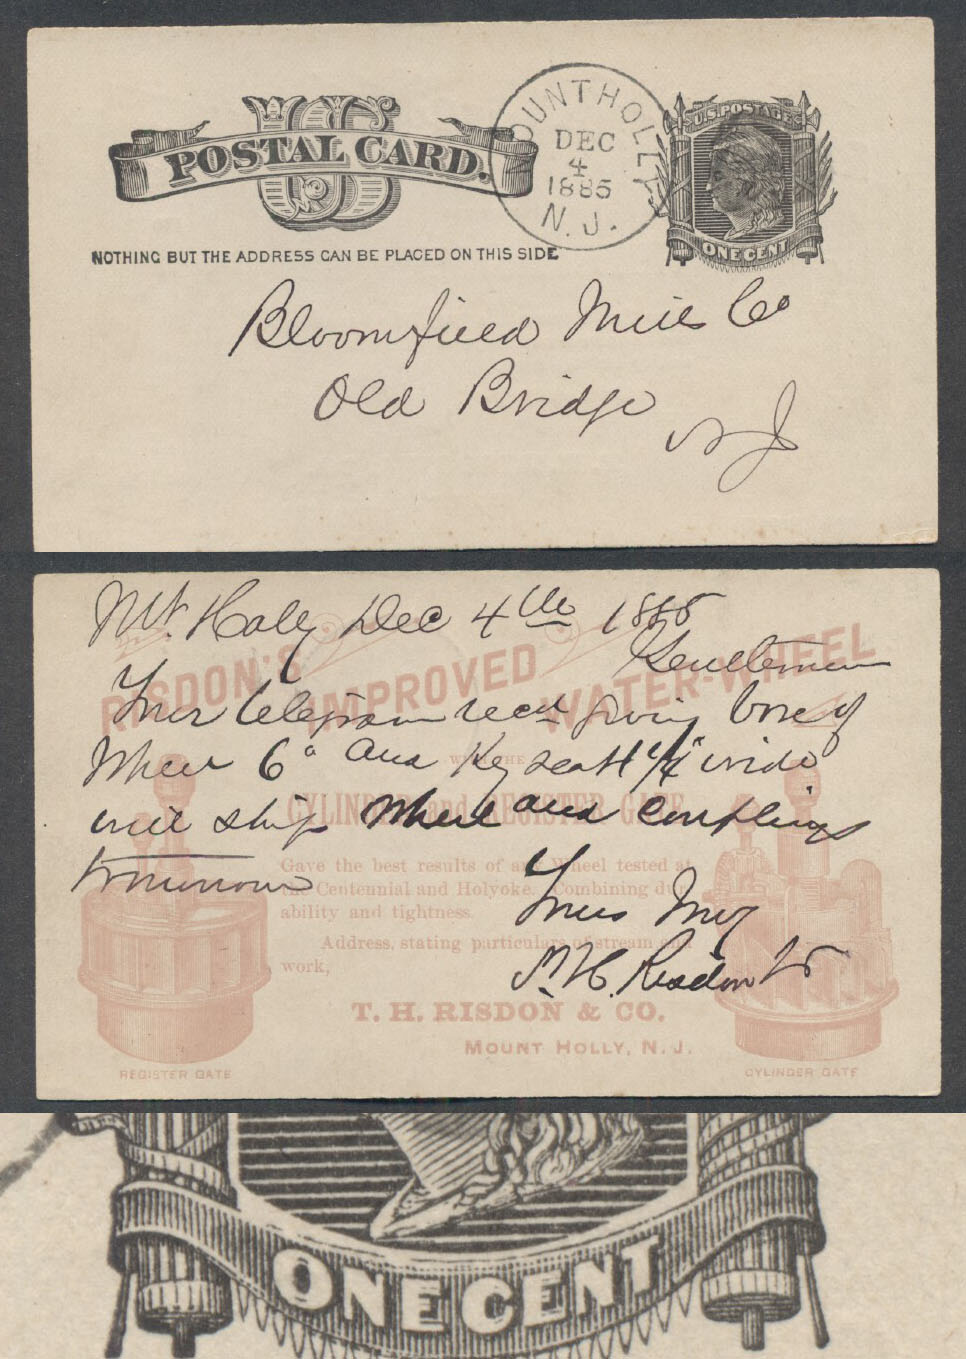 US
POSTAL CARD.
NOTHING BUT THE ADDRESS CAN BE PLACED ON THIS SIDE
MOUNT HOLLY
DEC
4
1885
N.J.
U.S. POSTAGE
ONE CENT
Bloomfield Mills Co
Old Bridge
N J
Mt. Holly Dec 4th 1885
Gentlemen
Your telegram recd giving bore of
Wheel 6" and Key seat 1 1/4" wide
will ship Wheel and Couplings
tomorrow
Yours Truly
T. H. Risdon & Co
RISDON'S IMPROVED WATER-WHEEL
WITH THE
CYLINDER and REGISTER GATE
Gave the best results of any Wheel tested at
the Centennial and Holyoke. Combining dur-
ability and tightness.
Address, stating particulars of stream and
work,
T. H. RISDON & CO.
MOUNT HOLLY, N. J.
REGISTER GATE
CYLINDER GATE
ONE CENT